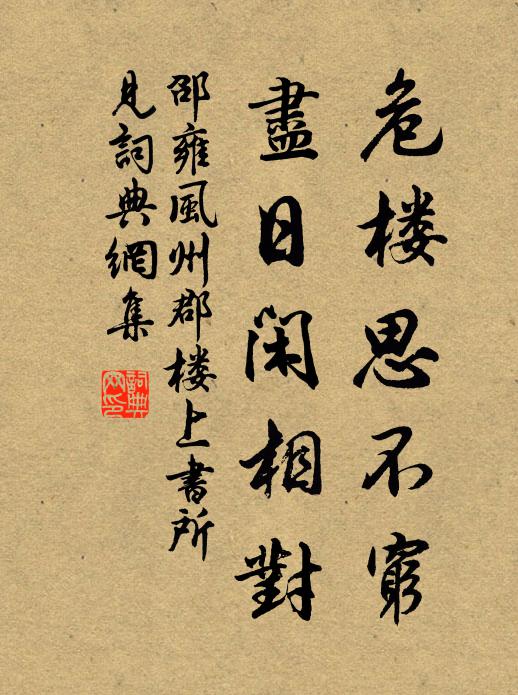 危楼思不窮
盡日閑相對
邵雍風州郡楼上書所
見詞典網集
詞典網印